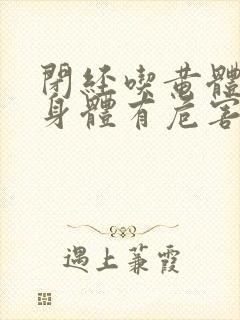 閉経喫黄體
身體有危害
遇上蒹霞